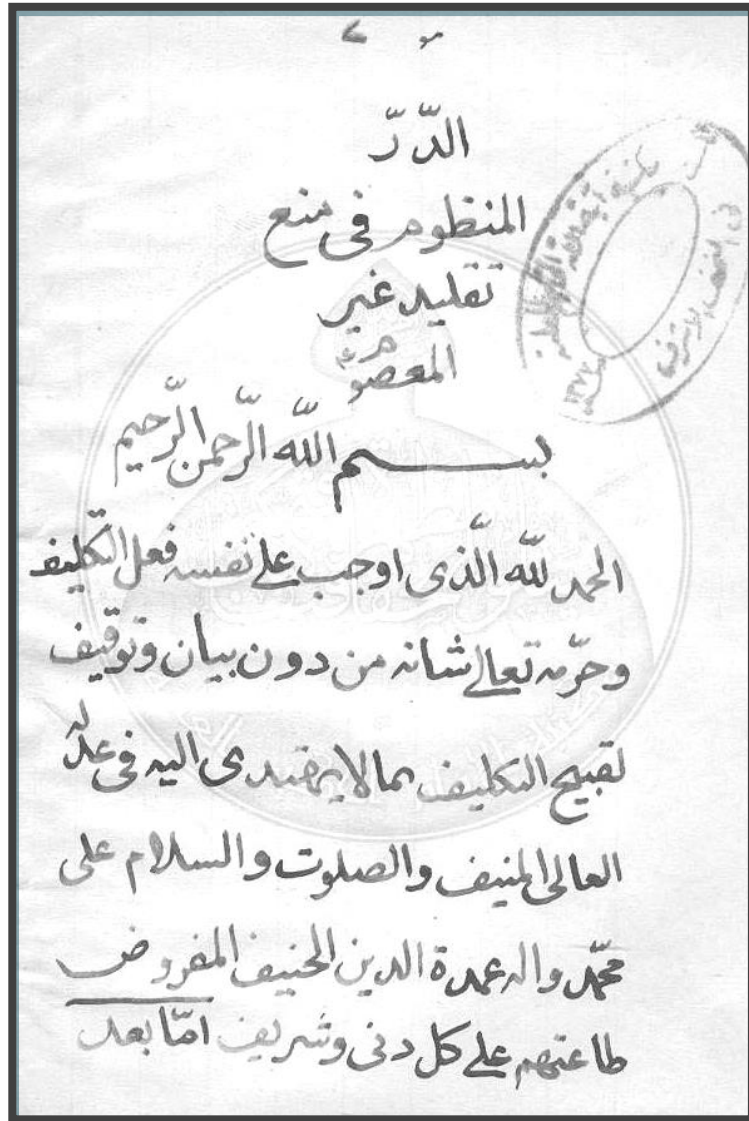 الدّرّ
المنظوم في منع
تقليد غير
المعصوم ع
بسم اللّه الرّحمن الرّحيم
الحمد للّه الّذى اوجب على نفسه فعل التّكليف
وحرّمه تعالى شانه من دون بيان وتوقيف
لقبيح التكليف بما لا يهتدى اليه فى عدله
العالى المنيف والصلوت والسلام على
محمّد واله عمدة الدين الحنيف المفروض
طاعتهم على كل دنى وشريف امّا بعد